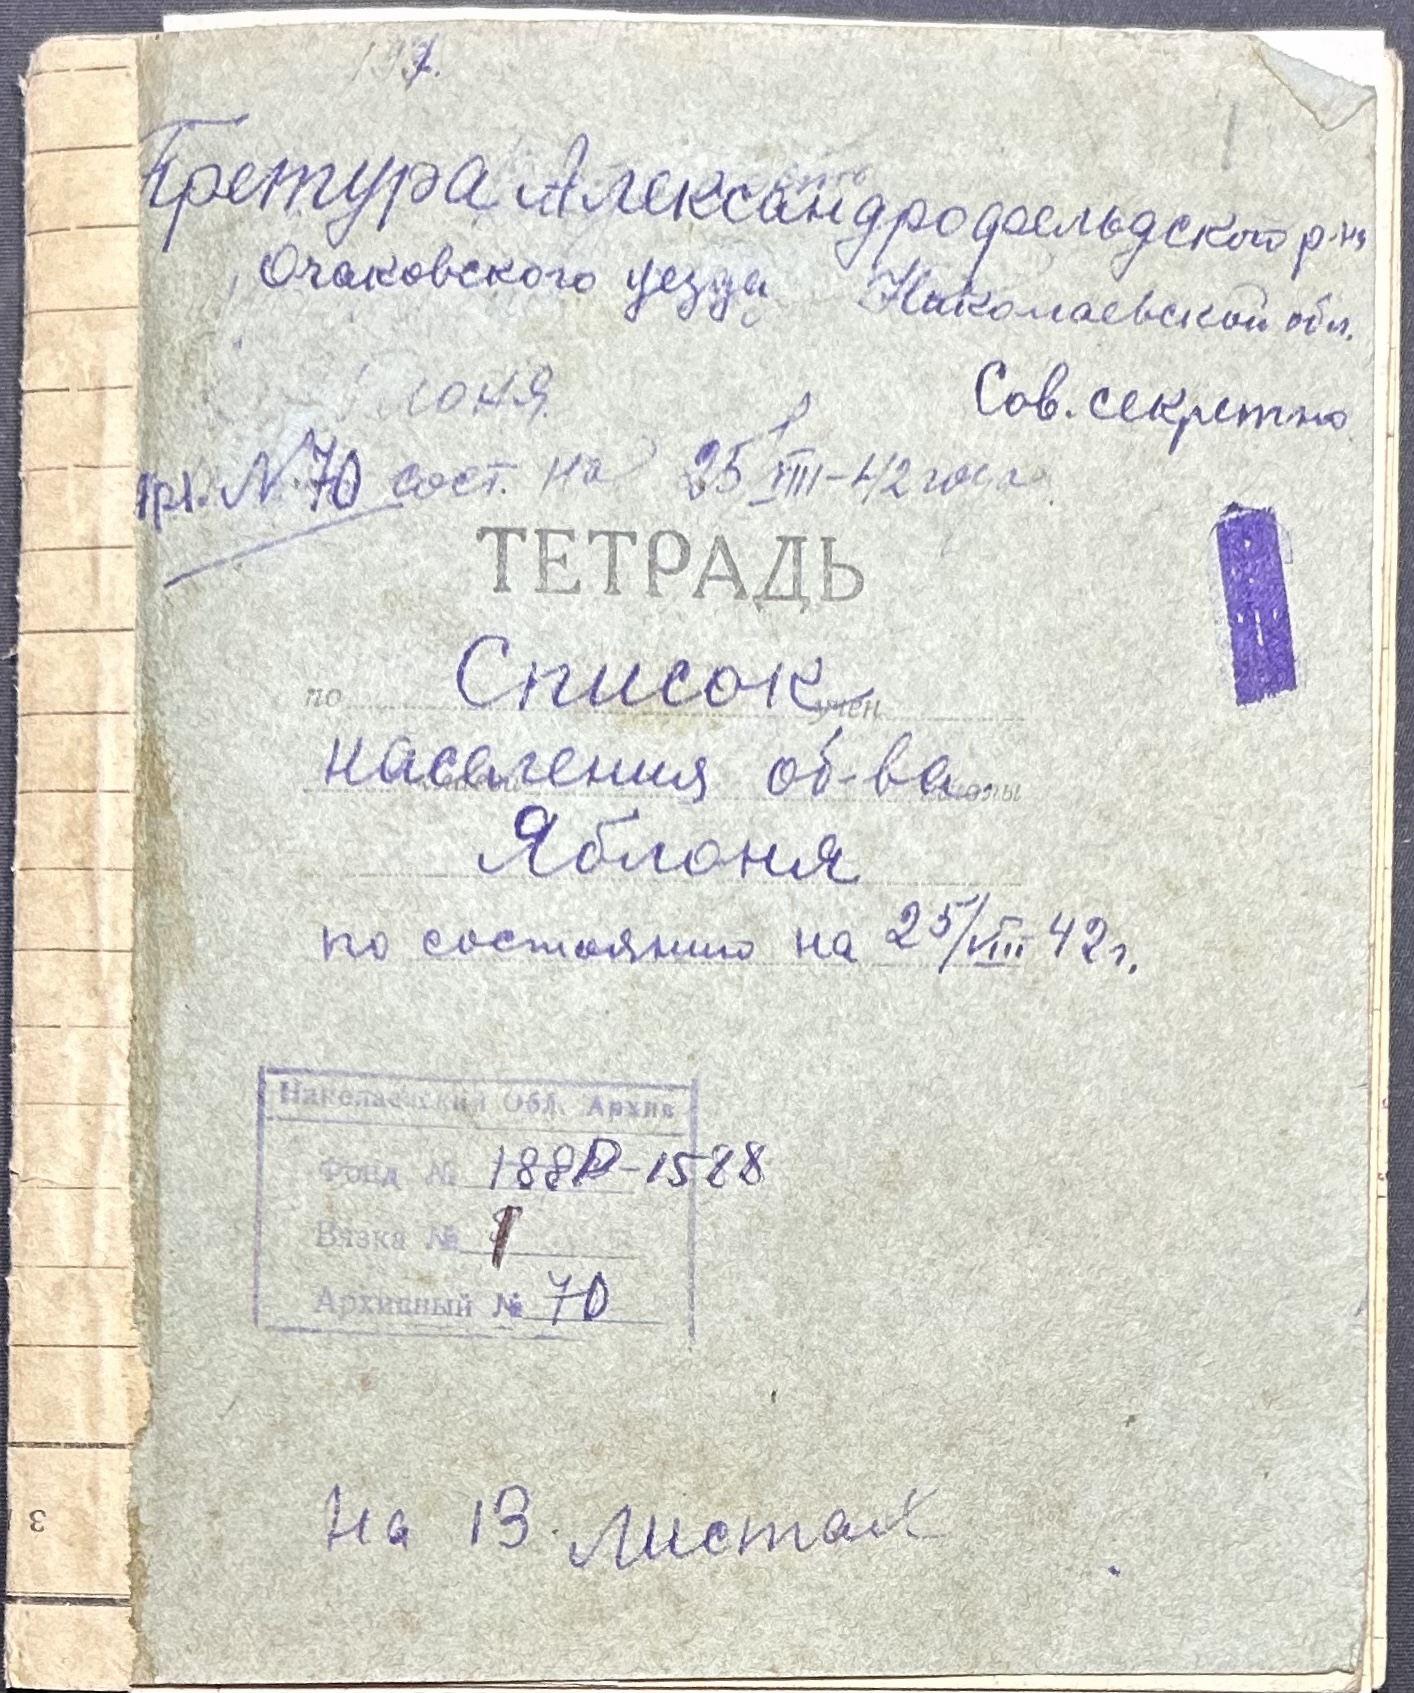 Претура Александрофельдского р-на
Очаковского уезда Николаевской обл.
Сов. секретно
Арх. № 70 сост. на 25 VIII-42 года
ТЕТРАДЬ
по Список учен
населения об-ва
Яблоня
по состоянию на 25/VIII 42 г.
Николаевский Обл. Архив
Фонд № 188Р-1588
Вязка № 1
Архивный № 70
На 13 листах
3